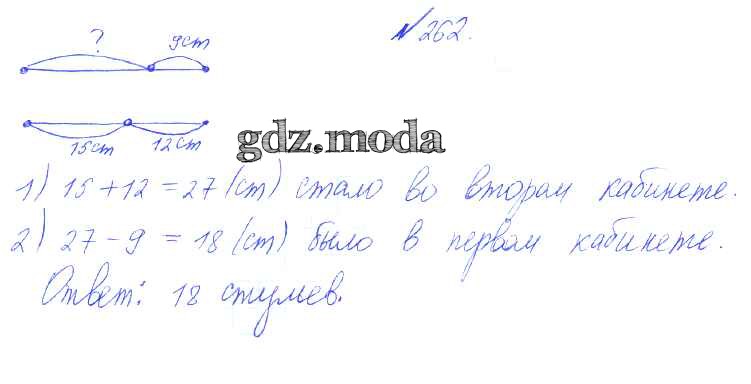 №262.
? 9ст
15ст 12ст
gdz.moda
1) 15+12=27 (ст) стало во втором кабинете.
2) 27-9=18 (ст) было в первом кабинете.
Ответ: 18 стульев.